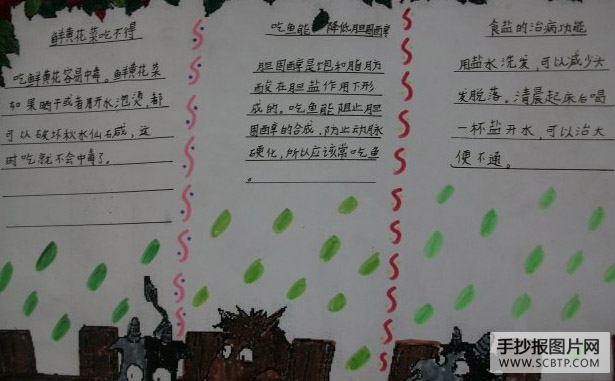 鲜黄花菜吃不得
吃鲜黄花容易中毒。鲜黄花菜
如果晒干或者用开水泡烫,都
可以破坏秋水仙碱,这
时吃就不会中毒了。
吃鱼能 降低胆固醇
胆固醇是饱和脂肪
酸在胆盐作用下形
成的。吃鱼能阻止胆
固醇的合成,防止动脉
硬化,所以应该常吃鱼
。
食盐的治病功能
用盐水洗发,可以减少头
发脱落。清晨起床后喝
一杯盐开水,可以治大
便不通。
手抄报图片网
WWW.SCBTP.COM